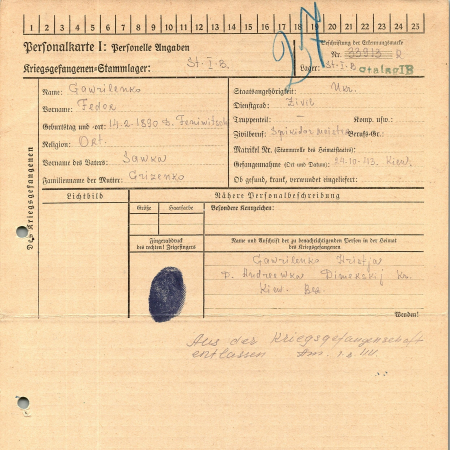 1 2 3 4 5 6 7 8 9 10 11 12 13 14 15 16 17 18 19 20 21 22 23 24 25
Personalkarte I: Personelle Angaben
Beschriftung der Erkennungsmarke
Nr. 33913 R
Kriegsgefangenen-Stammlager: St.-I-B.
Lager: St-I-B. Stalag IB
Des Kriegsgefangenen
Name: Gawrilenko
Vorname: Fedor
Geburtstag und -ort: 14.2.1890
Religion: Ort.
Vorname des Vaters: Sawka
Familienname der Mutter: Grizenko
Staatsangehörigkeit: Ukr.
Dienstgrad: Zivil
Truppenteil: - Komp. usw.:
Zivilberuf: Berufs-Gr.:
Matrikel Nr. (Stammrolle des Heimatstaates):
Gefangennahme (Ort und Datum): 10.43. Kiew.
Ob gesund, krank, verwundet eingeliefert:
Lichtbild
Nähere Personalbeschreibung
Größe
Haarfarbe
Besondere Kennzeichen:
Fingerabdruck
des rechten! Zeigefingers
Name und Anschrift der zu benachrichtigenden Person in der Heimat
des Kriegsgefangenen
Gawrilenko
D. Andreewka Dimerskij
Kiew.
Wenden!
Aus der Kriegsgefangenschaft
entlassen am